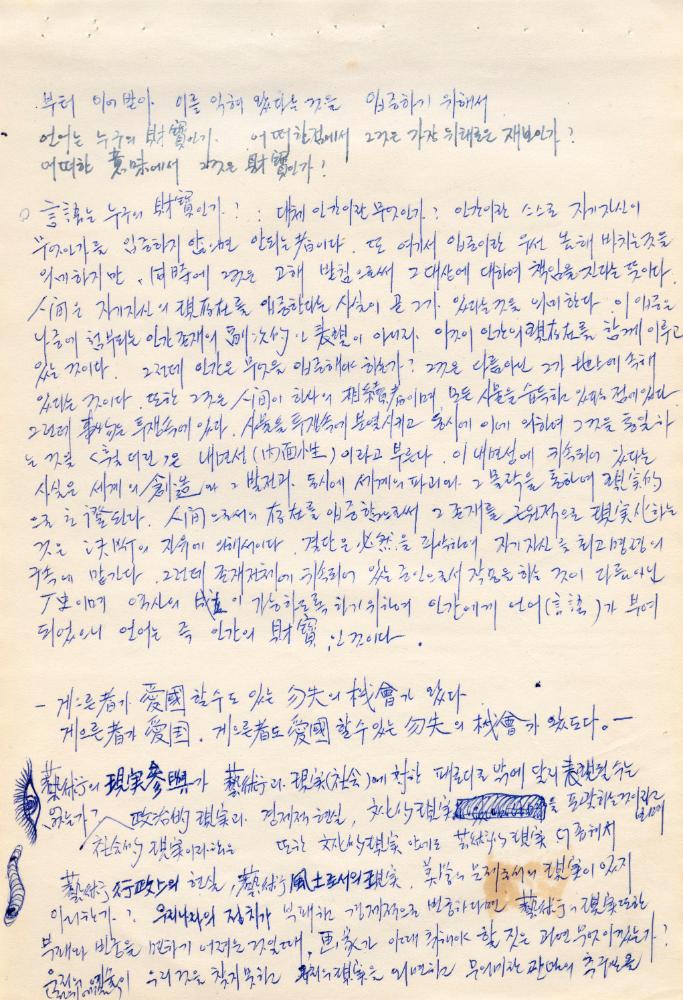 부터 이어받아 이를 익혀 왔다는 것을 입증하기 위해서
언어는 누구의 財寶인가. 어떠한 점에서 그것은 가장 위태로운 재보인가?
어떠한 意味에서 그것은 財寶인가?
言語는 누구의 財寶인가? : 대체 인간이란 무엇인가? 인간이란 스스로 자기자신이
무엇인가를 입증하지 않으면 안되는 者이다. 또 여기서 입증이란 우선 바치는 것을
의미하지만, 同時에 그것은 고해 바침으로써 그 대상에 대하여 책임을 진다는 뜻이다.
人間은 자기자신의 現存在를 입증한다는 사실이 곧 그가 있다는 것을 의미한다. 이 입증은
나중에 첨부되는 인간존재의 副次的인 表現이 아니라. 이것이 인간의 現存在를 함께 이루고
있는 것이다. 그런데 인간은 무엇을 입증해야 하는가? 그것은 다름아닌 그가 속해
있다는 것이다. 또한 그것은 人間이 相續者이며 모든 사물을 습득하고 있다는 점에 있다.
그런데 투쟁속에 있다. 사물을 투쟁속에 분열시키고 동시에 이에 의하여 그것을 통일하
는 것을 <횔더린>은 내면성(內面性)이라고 부른다. 이 내면성에 귀속되어 있다는
사실은 세계의 創造와 그 발전과. 동시에 세계의 파괴와 그 몰락을 통하여 現實的
으로 된다. 人間으로서의 存在를 입증함으로써 그 존재를 근원적으로 現實化하는
것은 決斷의 자유에 의해서이다. 결단은 必然을 파악하여 자기자신을 최고명령의
속에 맡긴다. 그런데 존재전체에 귀속되어 있는 증인으로서 작품을 하는 것이 다름아닌
이며 역사의 成立이 가능하도록 하기 위하여 인간에게 언어(言語)가 부여
되었으니 언어는 즉 인간의 財寶인 것이다.
- 게으른者가 愛國할수도 있는 勿失의 機會가 왔다
게으른者가 愛国. 게으른者도 愛國할수 있는 勿失의 機會가 왔도다. -
藝術의 現実參與가 藝術과 現実(社会)에 향한 밖에 달리 表現될수는
없는가? 政治的 現実과 경제적 현실, 文化的 現実을 포괄하는 것이라고
社会的 現実이라 함은 또한 文化的 現実 안에는 藝術的 現実 더 중해서
藝術行政上의 현실, 藝術風土로서의 現実, 美術의 문제로서의 現実이 있지
아니한가? 우리나라의 정치가 부패하고 경제적으로 빈곤하다면 藝術의 現実 또한
부패와 빈곤을 면하기 어려운 것일때, 画家가 할 것은 과연 무엇이겠는가?
우리것을 찾지 못하고 現実을 외면하고 무의미한